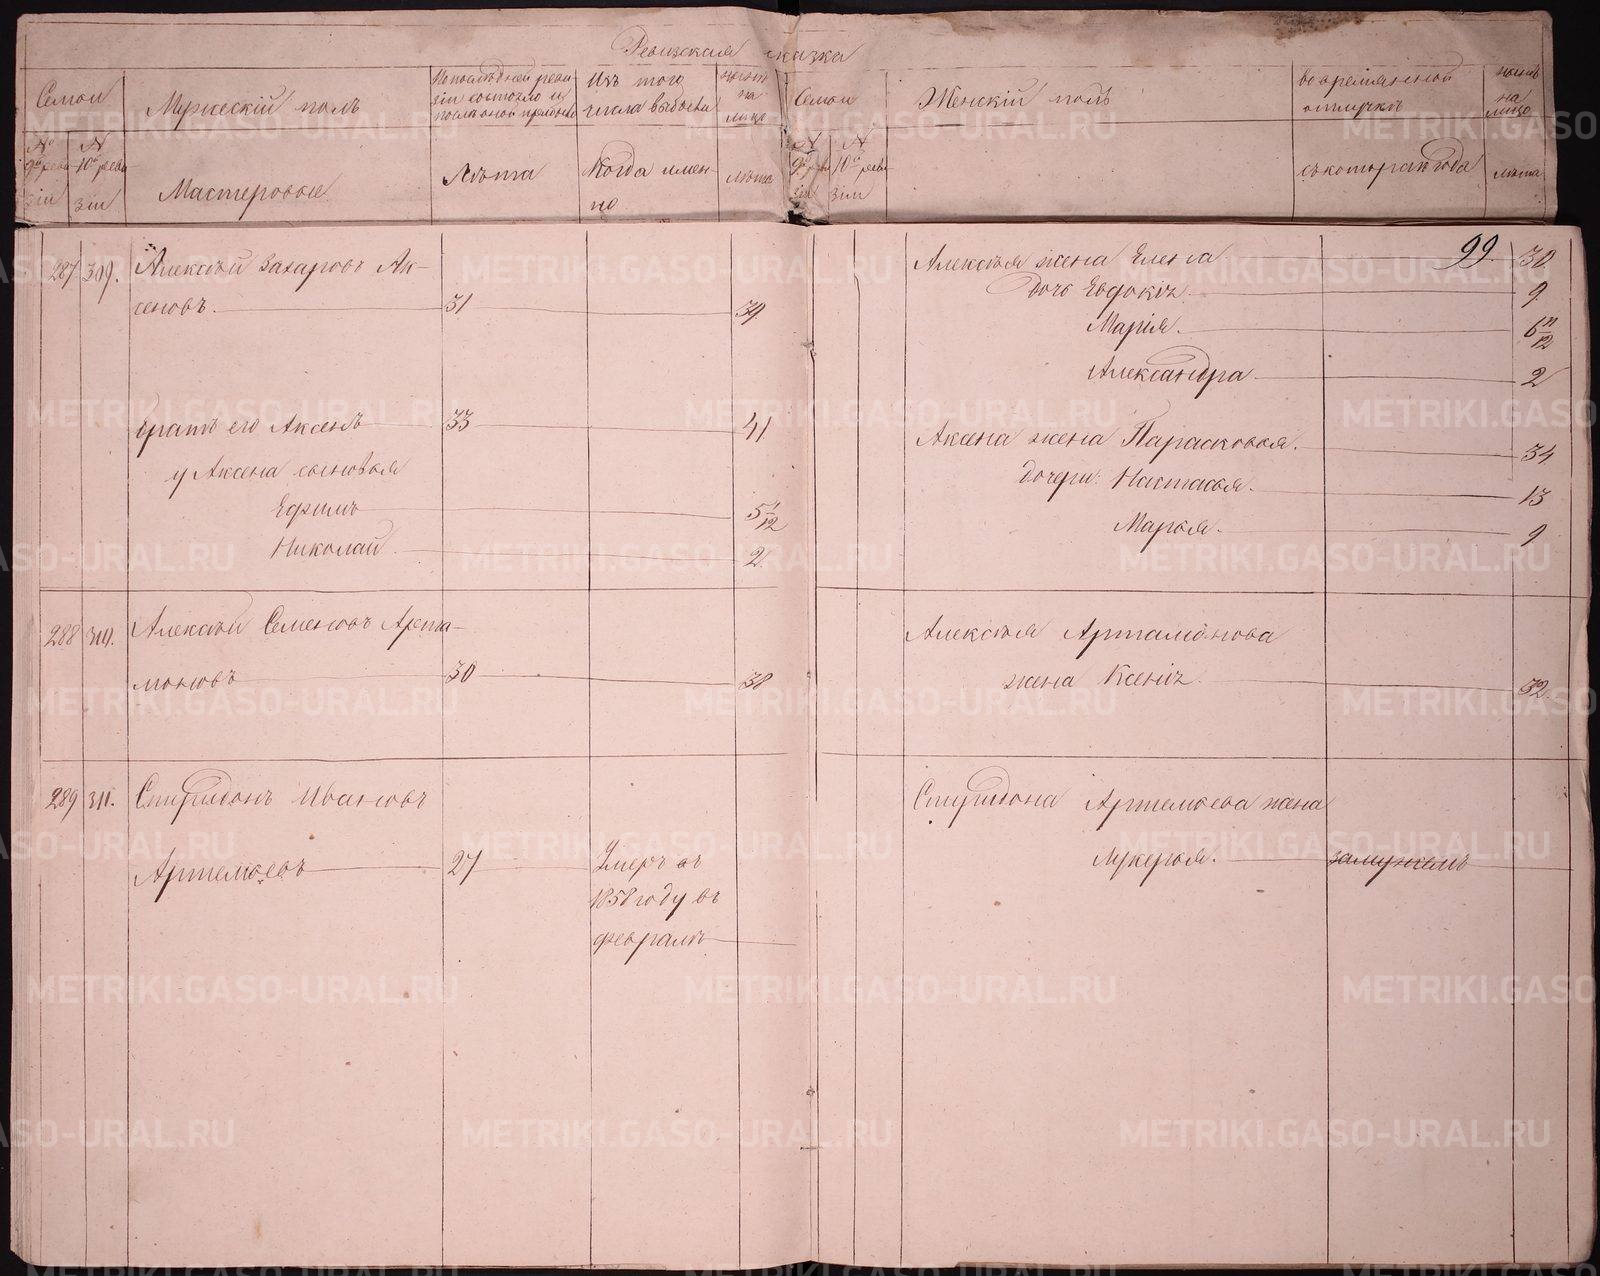 Ревизская сказка
Семьи
Мужескій полъ
По последней ревизіи состояло и после оной прибыло
Изъ того числа выбыли
ныне на лицо
Семьи
Женскій полъ
во временной отлучкѣ
ныне на лицо
№ 9й ревизіи
№ 10й ревизіи
Мастеровые
Лѣта
Когда именно
лѣта
№ 9й ревизіи
№ 10й ревизіи
съ котораго года
лѣта
99
287 309. Алексѣй Захаровъ Ак-
сеновъ. 31 39
братъ его Аксенъ 33 41
у Аксена сыновья
Ефимъ 5/12
Николай. 2
Алексѣя жена Елена 30
дочь Евдокія. 9
Марія. 6 11/12
Александра 2
Аксена жена Парасковья. 34
дочери: Настасья. 13
Марья. 9
288 310. Алексѣй Семеновъ Арта-
моновъ 30 38
Алексѣя Артамонова
жена Ксенія. 32.
289 311. Спиридонъ Ивановъ
Артемьевъ 27 Умеръ въ
1858 году въ
февралѣ
Спиридона Артемьева жена
Лукерья. замужемъ
METRIKI.GASO-URAL.RU